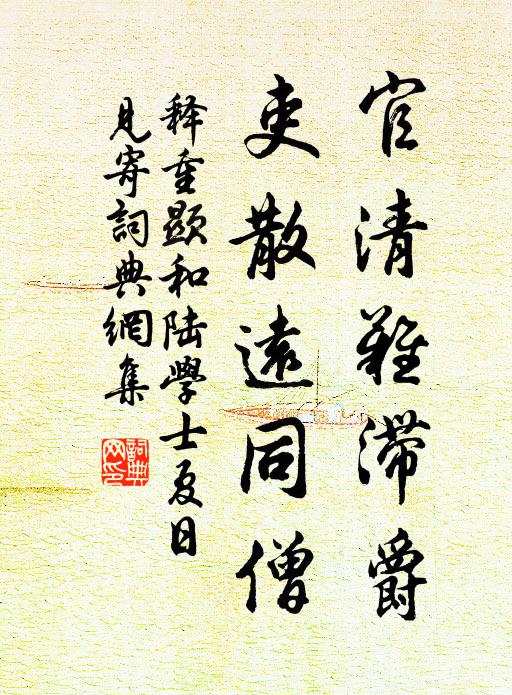 官清難滯爵
吏散遠同僧
释重顯和陆學士夏日
見寄詞典網集
詞典
网印